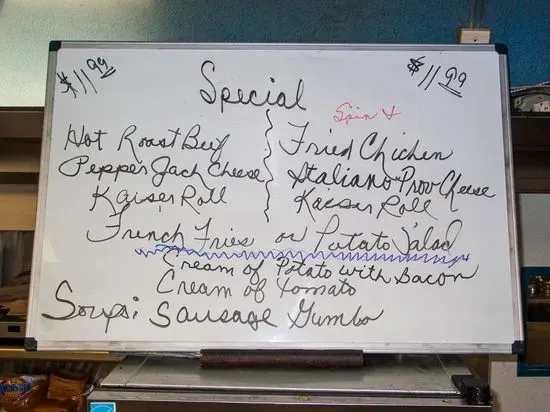 $11.99
$11.99
Special
Hot Roast Beef
Pepper Jack Cheese
Kaiser Roll
Spin +
Fried Chicken
Italiano Prov Cheese
Kaiser Roll
French Fries or Potato Salad
Cream of Potato with Bacon
Cream of Tomato
Soups: Sausage Gumbo